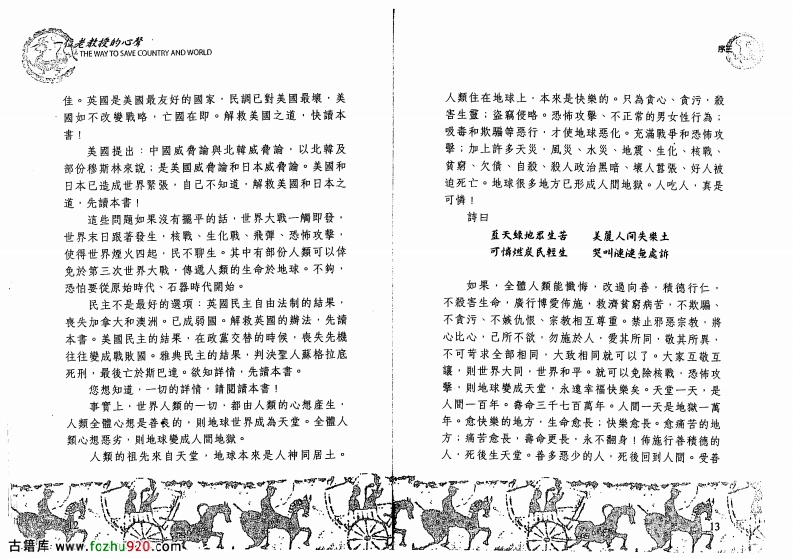 一位老教授的心聲
THE WAY TO SAVE COUNTRY AND WORLD
佳。英國是美國最友好的國家，民調已對美國最壞，美
國如不改變戰略，亡國在即。解救美國之道，快讀本
書！
美國提出：中國威脅論與北韓威脅論，以北韓及
部份穆斯林來說；是美國威脅論和日本威脅論。美國和
日本已造成世界緊張，自己不知道，解救美國和日本之
道，先讀本書！
這些問題如果沒有擺平的話，世界大戰一觸即發，
世界末日跟著發生，核戰、生化戰、飛彈、恐怖攻擊，
使得世界煙火四起，民不聊生。其中有部份人類可以倖
免於第三次世界大戰，傳遞人類的生命於地球。不夠，
恐怕要從原始時代、石器時代開始。
民主不是最好的選項：英國民主自由法制的結果，
喪失加拿大和澳洲。已成弱國。解救英國的辦法，先讀
本書。美國民主的結果，在政黨交替的時候，喪失先機
往往變成戰敗國。雅典民主的結果，判決聖人蘇格拉底
死刑，最後亡於斯巴達。欲知詳情，先讀本書。
您想知道，一切的詳情，請閱讀本書！
事實上，世界人類的一切，都由人類的心想產生，
人類全體心想是善良的，則地球世界成為天堂。全體人
類心想惡劣，則地球變成人間地獄。
人類的祖先來自天堂，地球本來是人神同居土。
序三
人類住在地球上，本來是快樂的。只為貪心、貪污，殺
害生靈；盜竊侵略。恐怖攻擊、不正常的男女性行為；
吸毒和欺騙等惡行，才使地球惡化。充滿戰爭和恐怖攻
擊；加上許多天災，風災、水災、地震、生化、核戰、
貧窮、欠債、自殺、殺人政治黑暗、壞人囂張、好人被
迫死亡。地球很多地方已形成人間地獄。人吃人，真是
可憐！
詩曰
藍天綠地眾生苦　美麗人間失樂土
可憐燃炭民輕生　哭叫漣漣無處訴
如果，全體人類能懺悔，改過向善，積德行仁，
不殺害生命，廣行博愛佈施，救濟貧窮病苦，不欺騙、
不貪污、不嫉仇恨、宗教相互尊重。禁止邪惡宗教，將
心比心，己所不欲，勿施於人，愛其所同，敬其所異，
不可苛求全部相同，大致相同就可以了。大家互敬互
讓，則世界大同，世界和平。就可以免除核戰，恐怖攻
擊，則地球變成天堂，永遠幸福快樂矣。天堂一天，是
人間一百年。壽命三千七百萬年。人間一天是地獄一萬
年。愈快樂的地方，生命愈長；快樂愈長。愈痛苦的地
方；痛苦愈長，壽命更長，永不翻身！佈施行善積德的
人，死後生天堂。善多惡少的人，死後回到人間。受善
13
古籍库 www.fozhu920.com